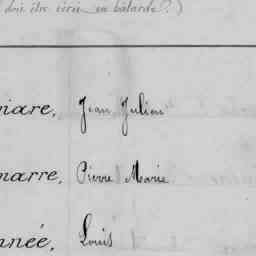 doit être écrit en bâtarde?)
iare, Jean Julien
marre, Pierre Marie
née, Louis